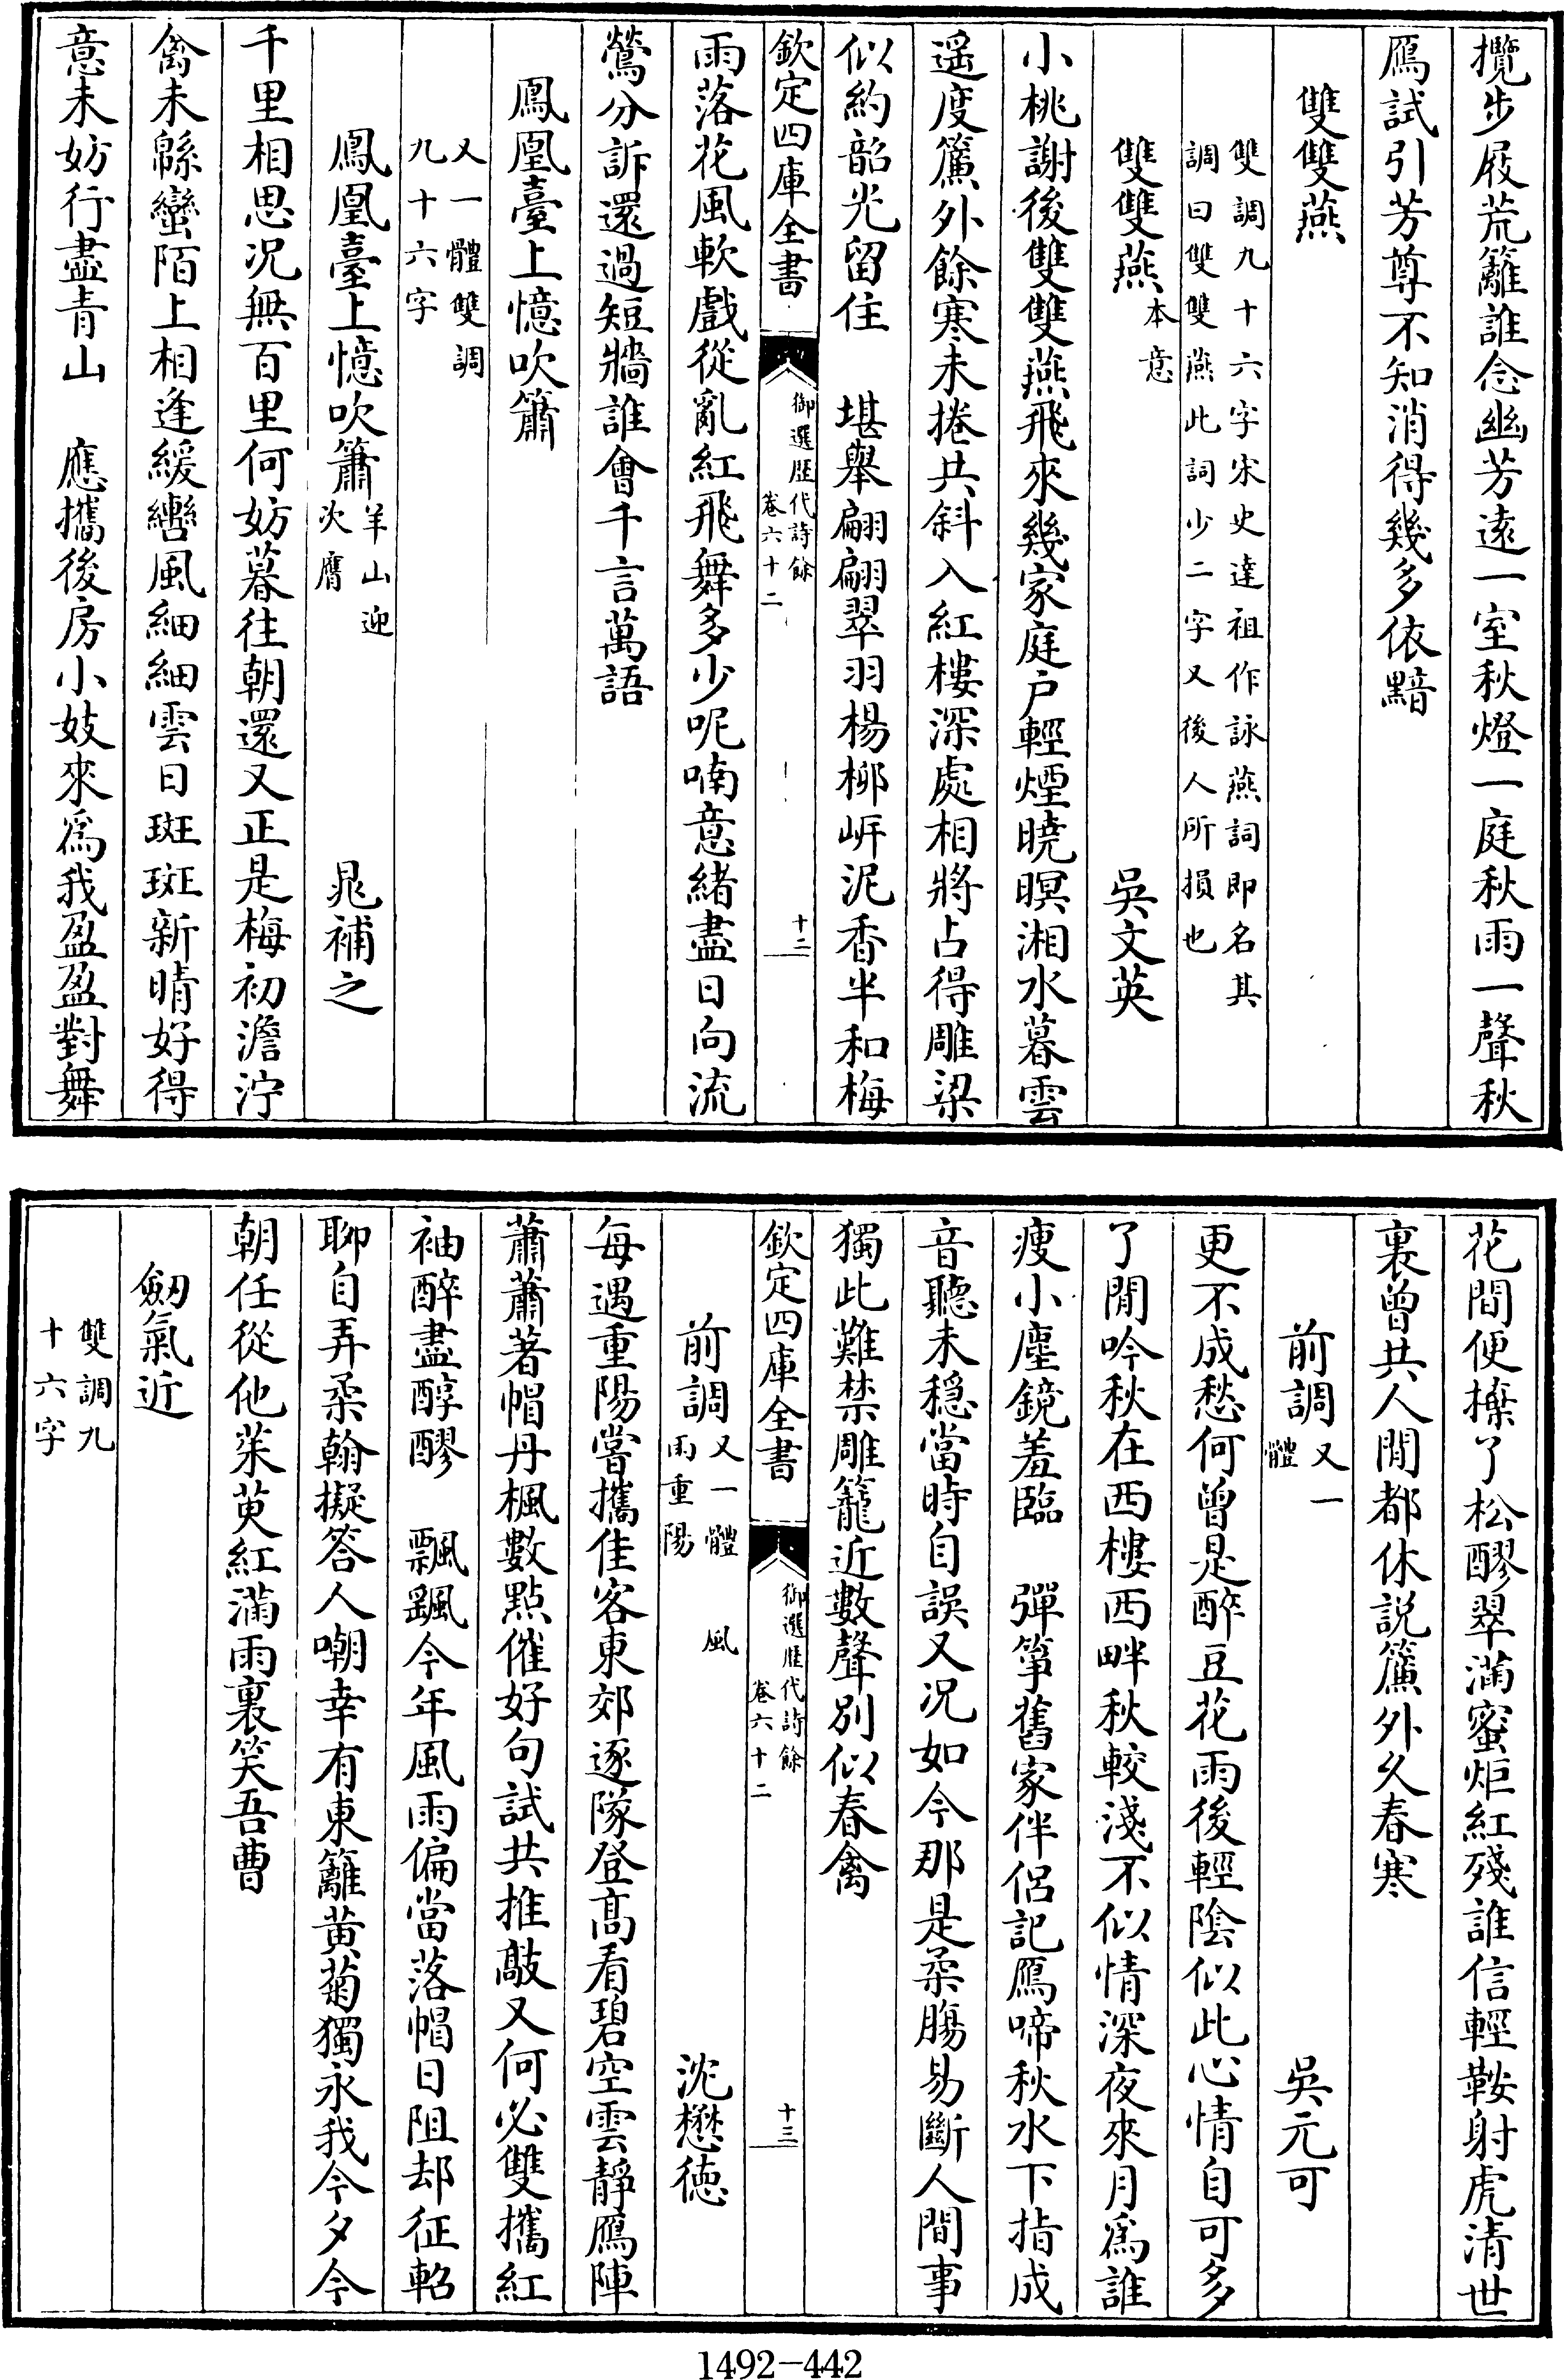 攬步屐荒籬誰念幽芳遠一室秋燈一庭秋雨一聲秋
鴈試引芳尊不知消得幾多依黯
雙雙燕
雙調九十六字宋史達祖作詠燕詞即名其
調曰雙雙燕此詞少二字又後人所損也
雙雙燕 本意 吳文英
小桃謝後雙雙燕飛來幾家庭戶輕煙曉暝湘水暮雲
遥度簾外餘寒未捲共斜入紅樓深處相將占得雕梁
似約韶光留住 堪舉翩翩翠羽楊栁岍泥香半和梅
欽定四庫全書 御選歷代詩餘 卷六十二 十二
雨落花風軟戲從亂紅飛舞多少呢喃意緒盡日向流
鶯分訴還過短牆誰會千言萬語
鳳凰臺上憶吹簫
又一體雙調
九十六字
鳳凰臺上憶吹簫 羊山迎次膺 晁補之
千里相思况無百里何妨暮往朝還又正是梅初澹泞
禽未緜蠻陌上相逢緩轡風細細雲日斑斑新晴好得
意未妨行盡青山 應攜後房小妓來爲我盈盈對舞
花間便棄了松醪翠滿蜜炬紅殘誰信輕鞍射虎清世
裏曾共人閒都休説簾外久春寒
前調 又一體 吳元可
更不成愁何曾是醉豆花雨後輕陰似此心情自可多
了閒吟秋在西樓西畔秋較淺不似情深夜來月爲誰
瘦小塵鏡羞臨 彈箏舊家伴侣記鴈啼秋水下指成
音聽未穩當時自誤又况如今那是柔腸易斷人間事
獨此難禁雕籠近數聲别似春禽
欽定四庫全書 御選歷代詩餘 卷六十二 十三
前調 又一體 風雨重陽 沈懋德
每遇重陽嘗攜佳客東郊逐隊登高看碧空雲靜鴈陣
蕭蕭著帽丹楓數點催好句試共推敲又何必雙攜紅
袖醉盡醇醪 飄颻今年風雨偏當落帽日阻却征軺
聊自弄柔翰擬答人嘲幸有東籬黄菊獨永我今夕今
朝任從他茱萸紅滿雨裏笑吾曹
劒氣近
雙調九
十六字
1492-442